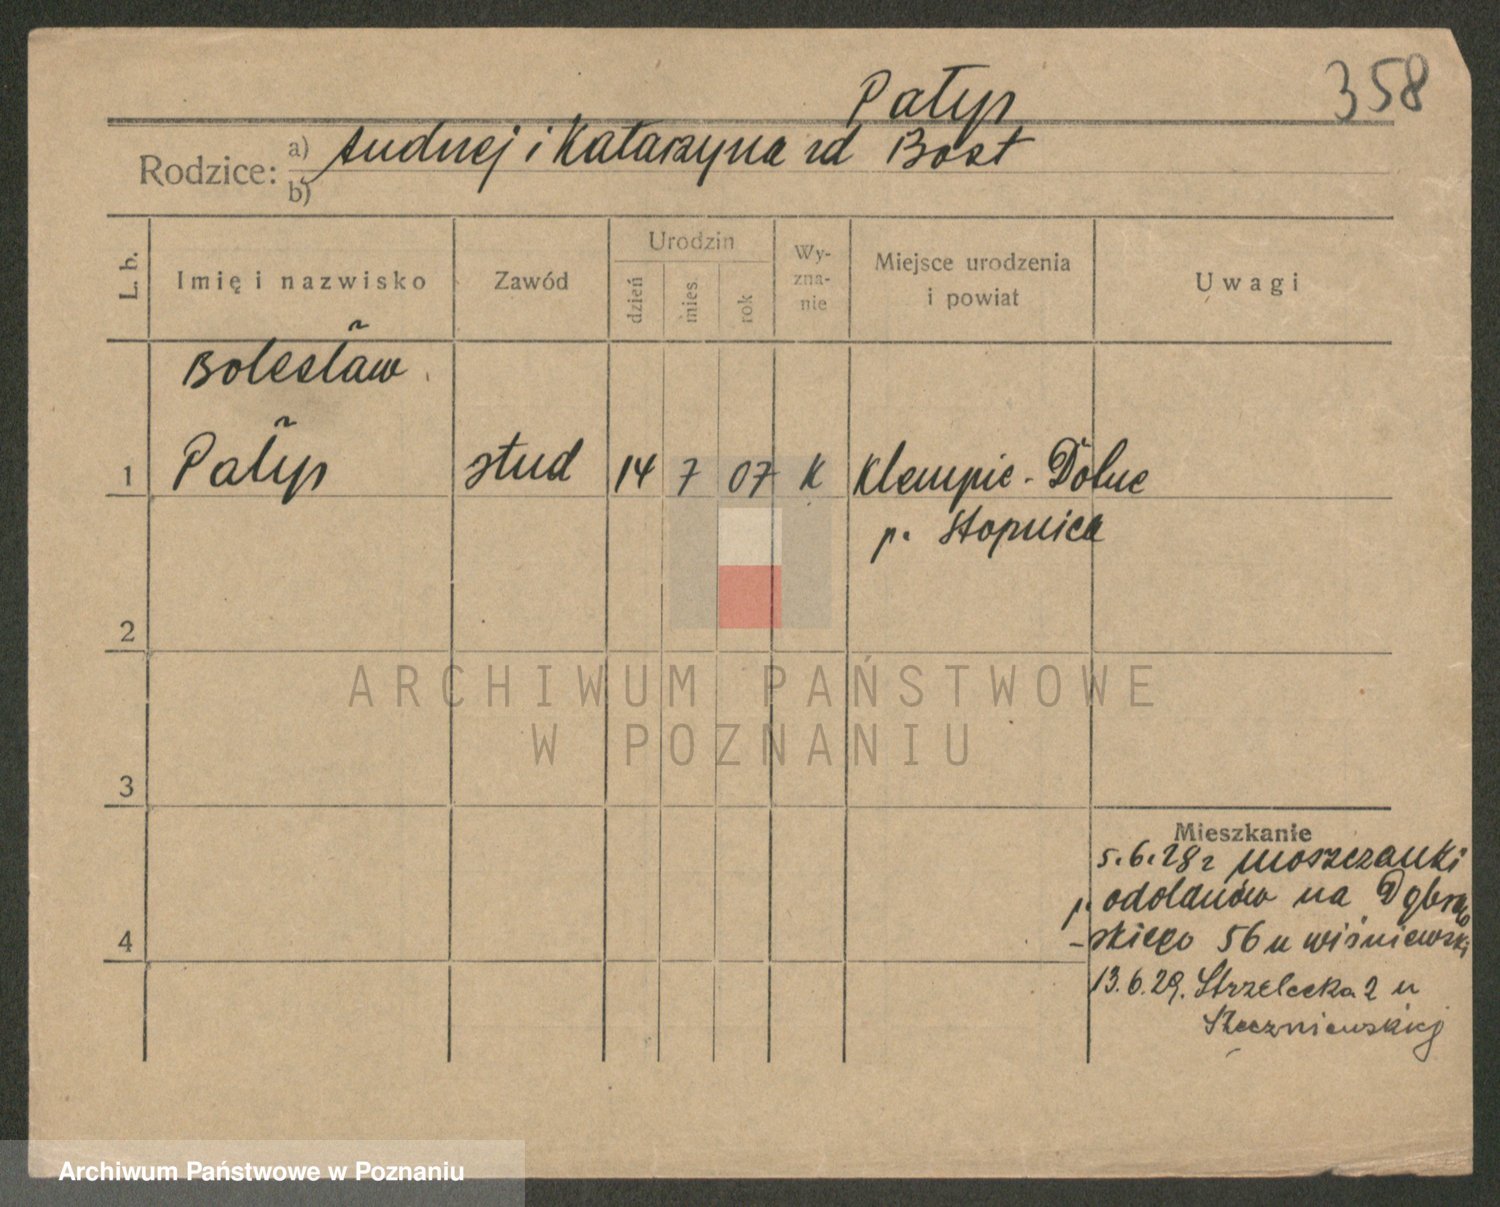 358
Pałyp
Rodzice: a) Andrzej i Katarzyna zd Bost
b)
L. b.
Imię i nazwisko
Zawód
Urodzin
dzień
mies.
rok
Wy-
zna-
nie
Miejsce urodzenia
i powiat
Uwagi
Bolesław
1 Pałyp stud 14 7 07 K Klempie - Dolne
p. Stopnica
2
3
4
ARCHIWUM PAŃSTWOWE
W POZNANIU
Mieszkanie
5.6.28 r Moszczanki
p. odolanów na Dąbrow
-skiego 56 u wiśniewski
13.6.29. Strzelecka 2 u
Archiwum Państwowe w Poznaniu